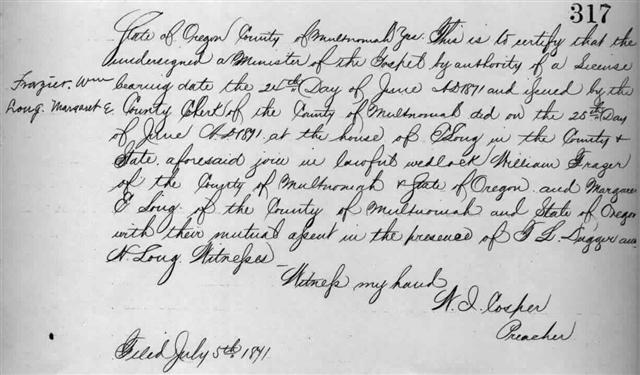 317
State of Oregon County of Multnomah } ss. This is to certify that the
undersigned a Minister of the Gospel by authority of a License
Frazier. Wm
bearing date the 24th Day of June AD 1871 and issued by the
Long. Margaret E.
County Clerk of the County of Multnomah did on the 25th Day
of June AD 1871. at the house of Long in the County &
State aforesaid join in lawful wedlock William Frazer
of the County of Multnomah & State of Oregon. and Margaret
E Long. of the County of Multnomah and State of Oregon
with their mutual assent in the presence of L. Dugger and
N. Long Witnesses
Witness my hand
Cosper
Preacher
Filed July 5th 1871